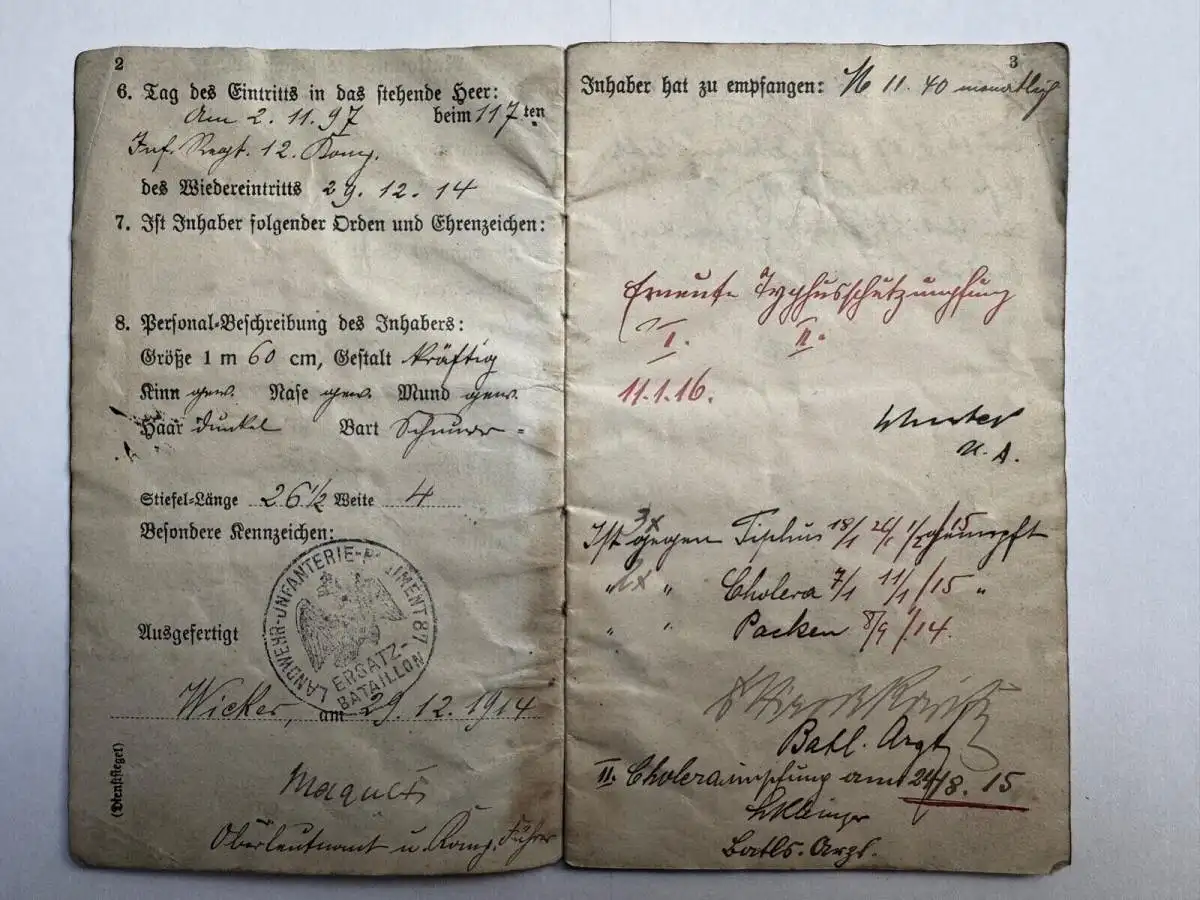 2
6. Tag des Eintritts in das stehende Heer:
Am 2.11.97 beim 117ten
Inf. Regt. 12. Komp.
des Wiedereintritts 29.12.14
7. Ist Inhaber folgender Orden und Ehrenzeichen:
8. Personal-Beschreibung des Inhabers:
Größe 1 m 60 cm, Gestalt kräftig
Kinn gew. Nase gew. Mund gew.
Haar dunkel Bart Schnurr-
Stiefel-Länge 26½ Weite 4
Besondere Kennzeichen:
LANDWEHR-INFANTERIE-REGIMENT 87
ERSATZ-
BATAILLON
Ausgefertigt
Wicker, am 29.12.1914
(Dienstsiegel)
Oberleutnant u. Komp. Führer
3
Inhaber hat zu empfangen: M 11.40 monatlich
Erneute Typhusschutzimpfung
I. II.
11.1.16.
U. A.
3x
Ist gegen Tiphus 18/1 24/1 geimpft
" 2x " Cholera 7/1 11/1 /15 "
" " Pocken 8/9 /14.
Batl. Arzt
II. Choleraimpfung am 24/8. 15
Batls. Arzt.